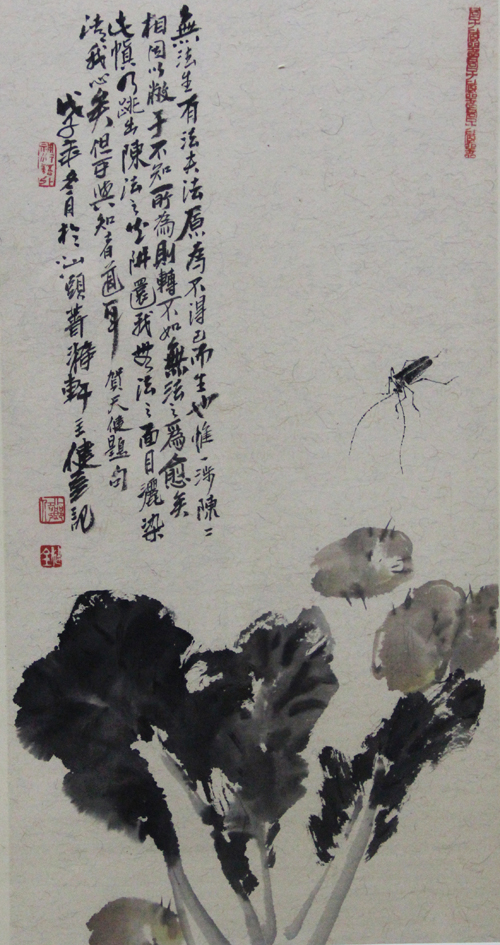 無法生有法夫法原為不得已而生也惟一涉陳〻
相因以敝予不知所為則轉不如無法之為愈矣
此幀乃跳出陳法之阱還我法之面目灑染
法我心矣但可與知者道耳 賀天健題句
戊子年冬月於汕頭菁軒主健記